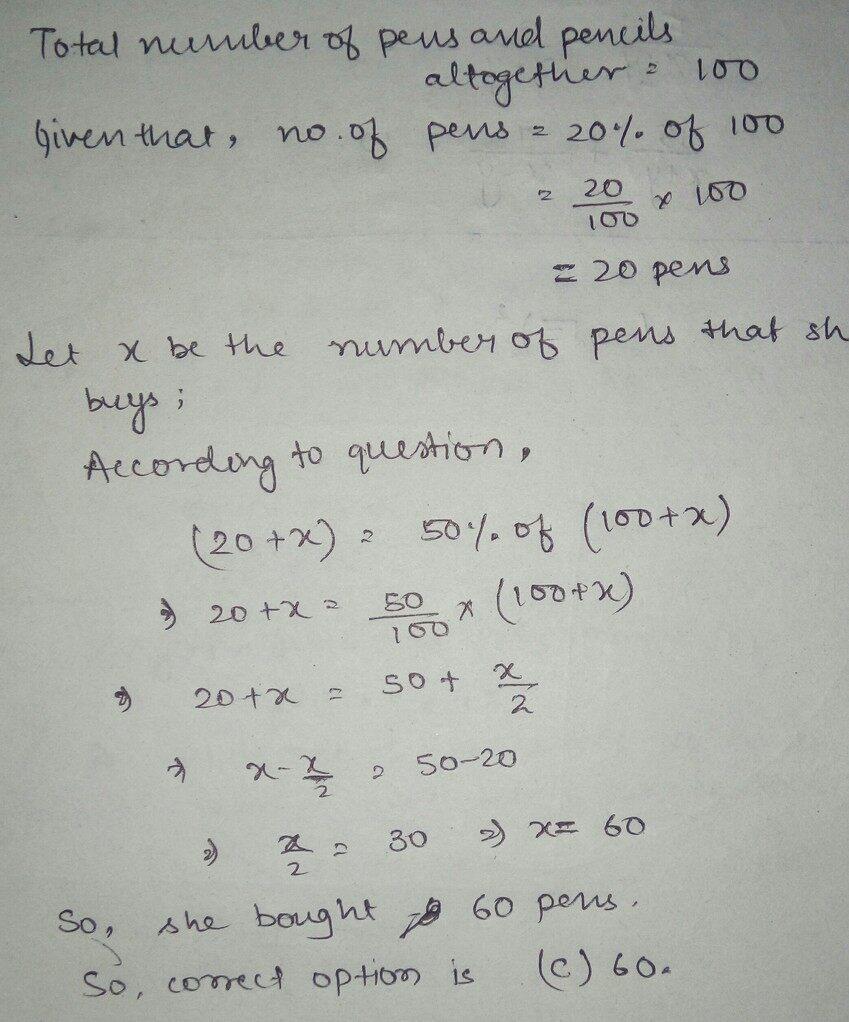 Total number of pens and pencils
altogether = 100
Given that, no. of pens = 20% of 100
= 20/100 x 100
= 20 pens
Let x be the number of pens that sh
buys ;
According to question,
(20 + x) = 50% of (100 + x)
⇒ 20 + x = 50/100 x (100 + x)
⇒ 20 + x = 50 + x/2
⇒ x - x/2 = 50-20
⇒ x/2 = 30 ⇒ x = 60
So, she bought 60 pens.
So, correct option is (c) 60.